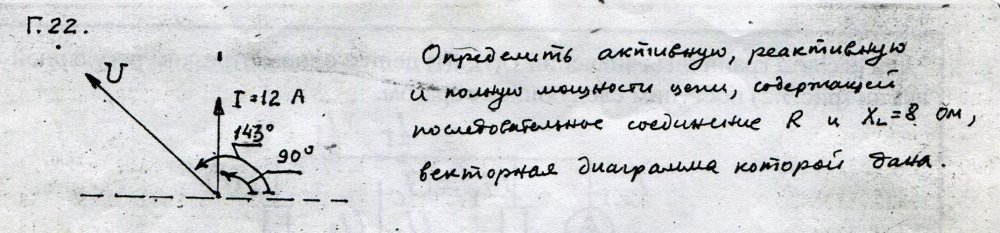 Г.22.
U
I=12 А
143°
90°
Определить активную, реактивную
и полную мощности цепи, содержащей
последовательное соединение R и X_L=8 Ом,
векторная диаграмма которой дана.